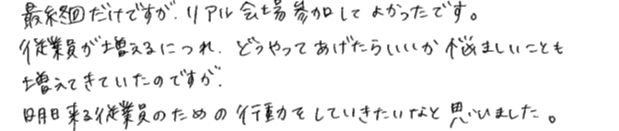 最終回だけですが、リアル会場参加してよかったです。
従業員が増えるにつれ、どうやってあげたらいいか悩ましいことも
増えてきていたのですが、
明日来る従業員のための行動をしていきたいなと思いました。